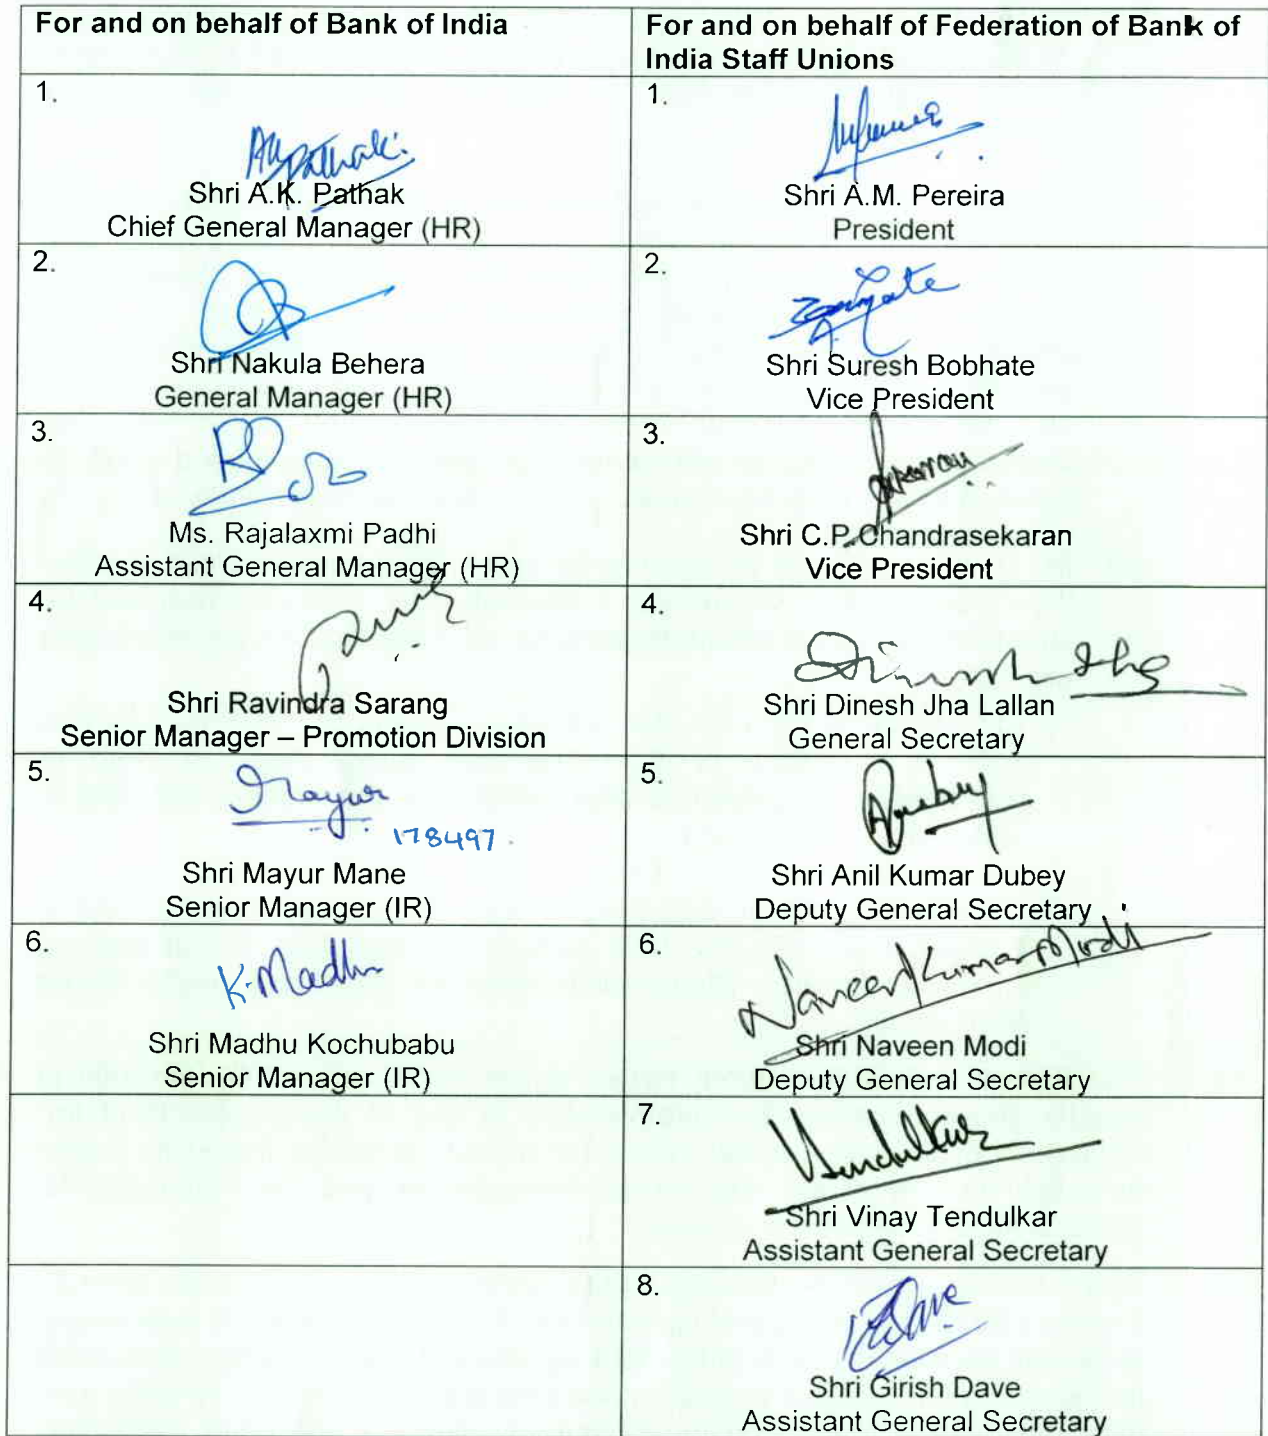 For and on behalf of Bank of India
For and on behalf of Federation of Bank of
India Staff Unions
1.
Shri A.K. Pathak
Chief General Manager (HR)
1.
Shri A.M. Pereira
President
2.
Shri Nakula Behera
General Manager (HR)
2.
Shri Suresh Bobhate
Vice President
3.
Ms. Rajalaxmi Padhi
Assistant General Manager (HR)
3.
Shri C.P. Chandrasekaran
Vice President
4.
Shri Ravindra Sarang
Senior Manager – Promotion Division
4.
Dinesh Jha
Shri Dinesh Jha Lallan
General Secretary
5.
Mayur
178497
Shri Mayur Mane
Senior Manager (IR)
5.
Shri Anil Kumar Dubey
Deputy General Secretary
6.
K. Madhu
Shri Madhu Kochubabu
Senior Manager (IR)
6.
Naveen Kumar Modi
Shri Naveen Modi
Deputy General Secretary
7.
Shri Vinay Tendulkar
Assistant General Secretary
8.
Shri Girish Dave
Assistant General Secretary